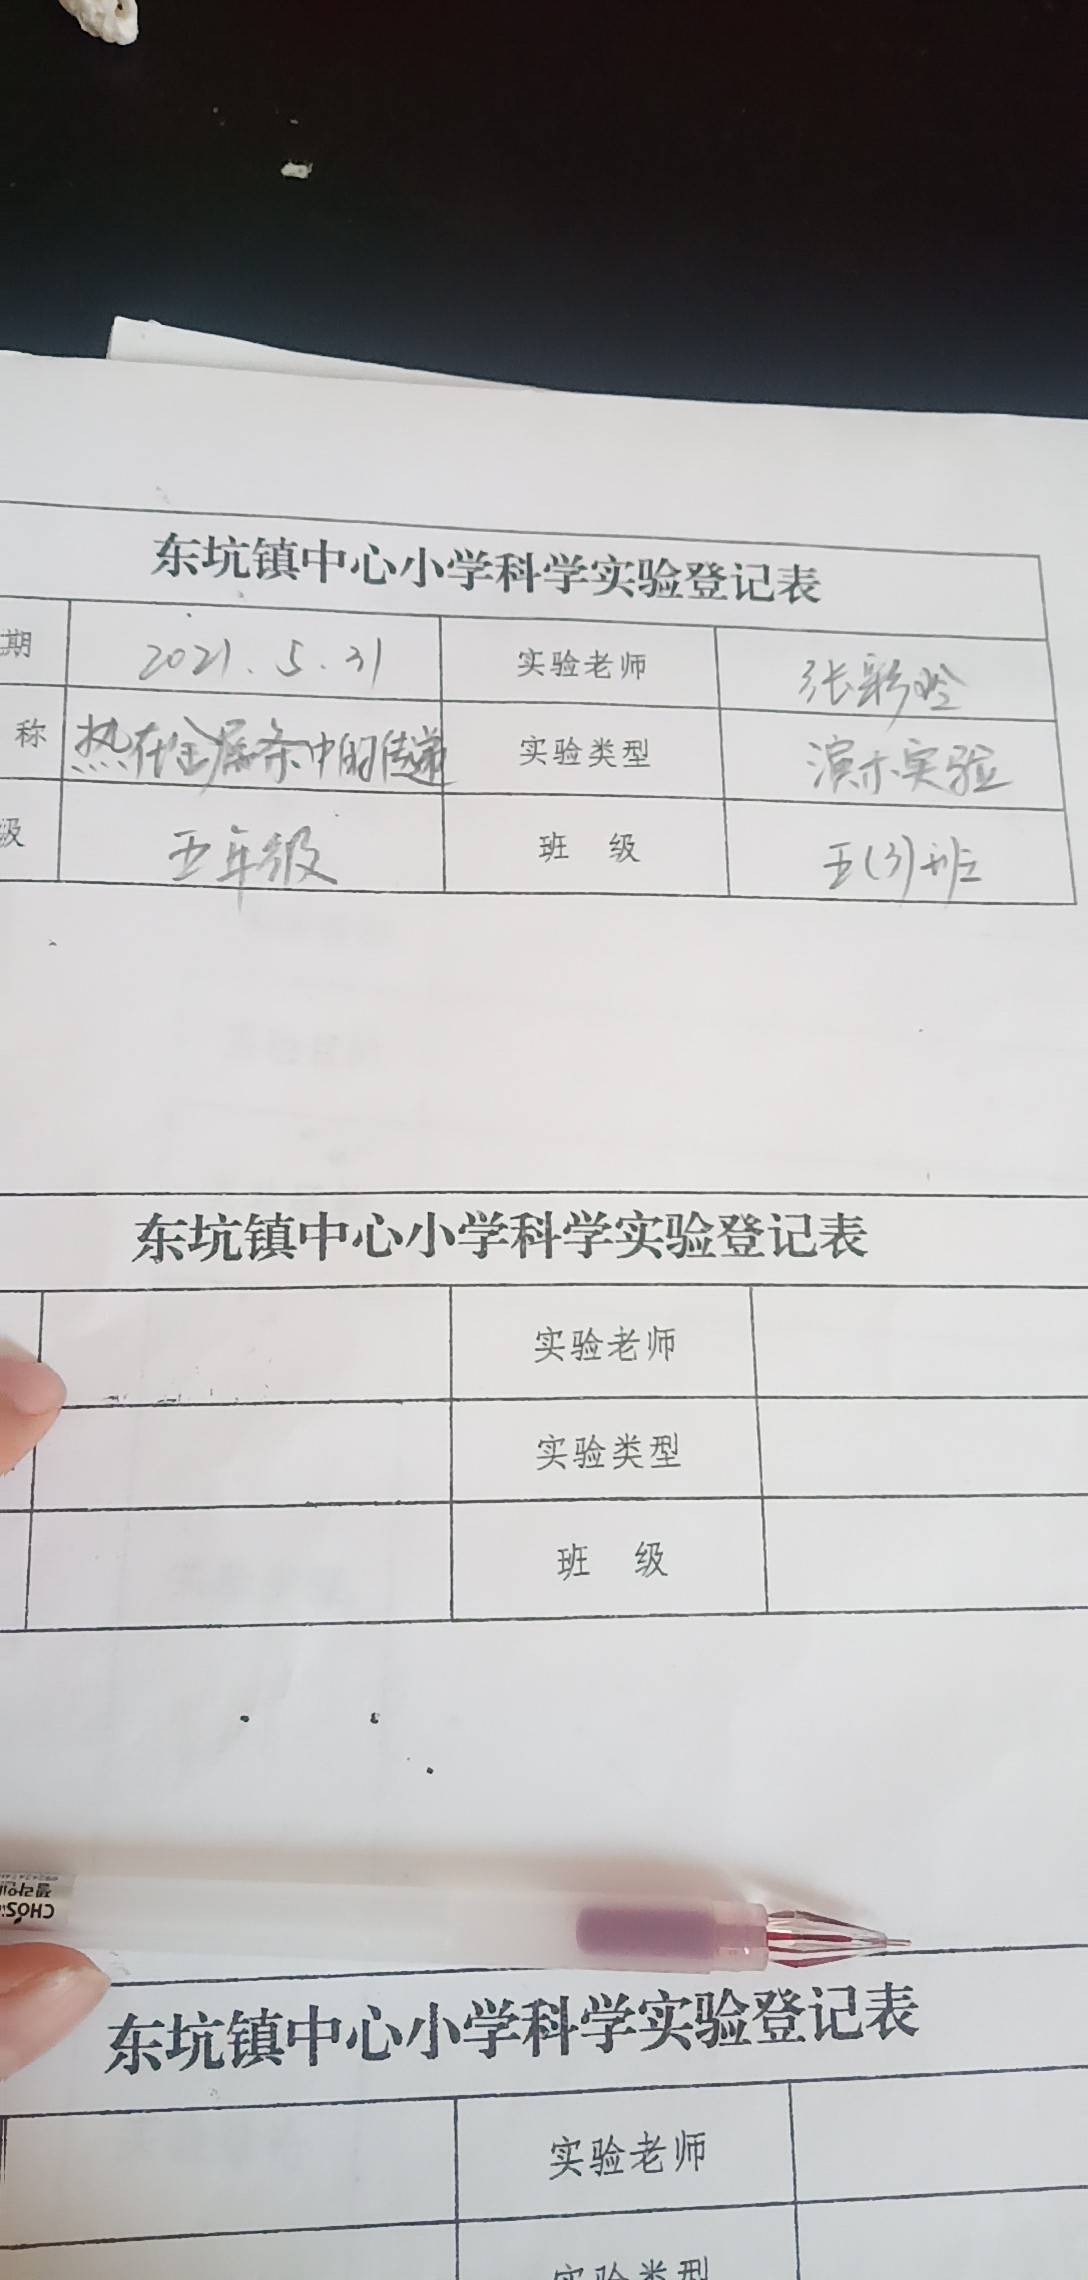 东坑镇中心小学科学实验登记表
期 2021.5.31 实验老师 张彩玲
称 热在金属条中的传递 实验类型 演示实验
级 五年级 班 级 五(3)班
东坑镇中心小学科学实验登记表
实验老师
实验类型
班 级
CHOS
东坑镇中心小学科学实验登记表
实验老师
实验类型